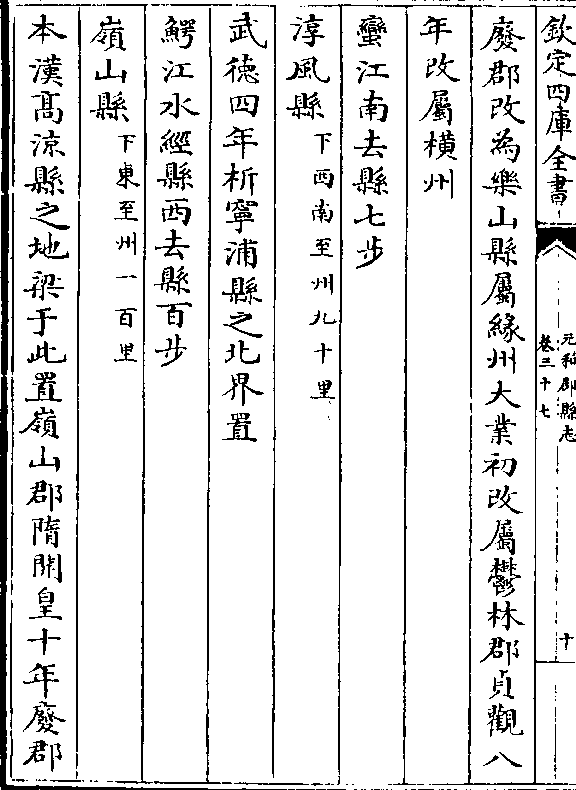 欽定四庫全書
元和郡縣志
卷三十七
十
廢郡改為樂山縣屬緣州大業初改屬鬱林郡貞觀八
年改屬橫州
蠻江南去縣七步
淳風縣下西南至州九十里
武德四年析寧浦縣之北界置
鰐江水經縣西去縣百步
嶺山縣下東至州一百里
本漢高涼縣之地梁于此置嶺山郡隋開皇十年廢郡